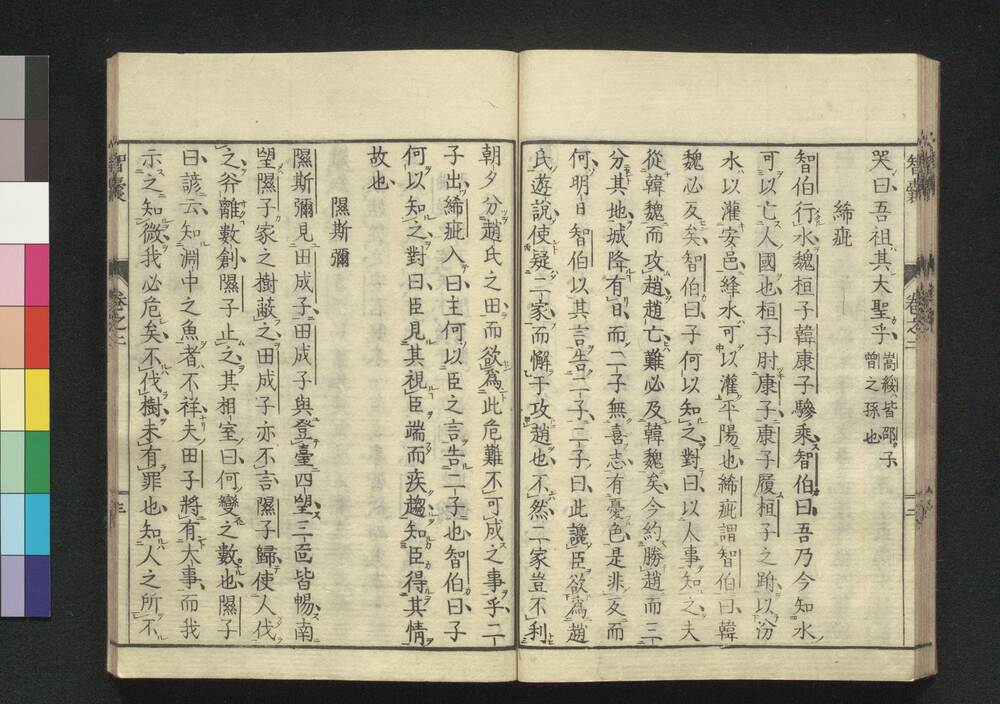 哭曰吾祖其大聖乎嵩綏皆邵子曾之孫也
絺疵
智伯行水魏桓子韓康子驂乘智伯曰吾乃今知水
可以亡人國也桓子肘康子康子履桓子之跗以汾
水以灌安邑絳水可以灌平陽也絺疵謂智伯曰韓
魏必反矣智伯曰子何以知之對曰以人事知之夫
從韓魏而攻趙趙亡難必及韓魏矣今約勝趙而三
分其地城降有日而二子無喜志有憂色是非反而
何明日智伯以其言告二子二子曰此讒臣欲為趙
氏遊說使疑二家而懈于攻趙也不然二家豈不利
朝夕分趙氏之田而欲為此危難不可成之事乎二
子出絺疵入曰主何以臣之言告二子也智伯曰子
何以知之對曰臣見其視臣端而疾趨知臣得其情
故也
隰斯彌
隰斯彌見田成子田成子與登臺四望三面皆暢南
望隰子家之樹蔽之田成子亦不言隰子歸使人伐
之斧離數創隰子止之其相室曰何變之數也隰子
曰諺云知淵中之魚者不祥夫田子將有大事而我
示之知微我必危矣不伐樹未有罪也知人之所不
智囊
卷之二
二
智囊
卷之二
三